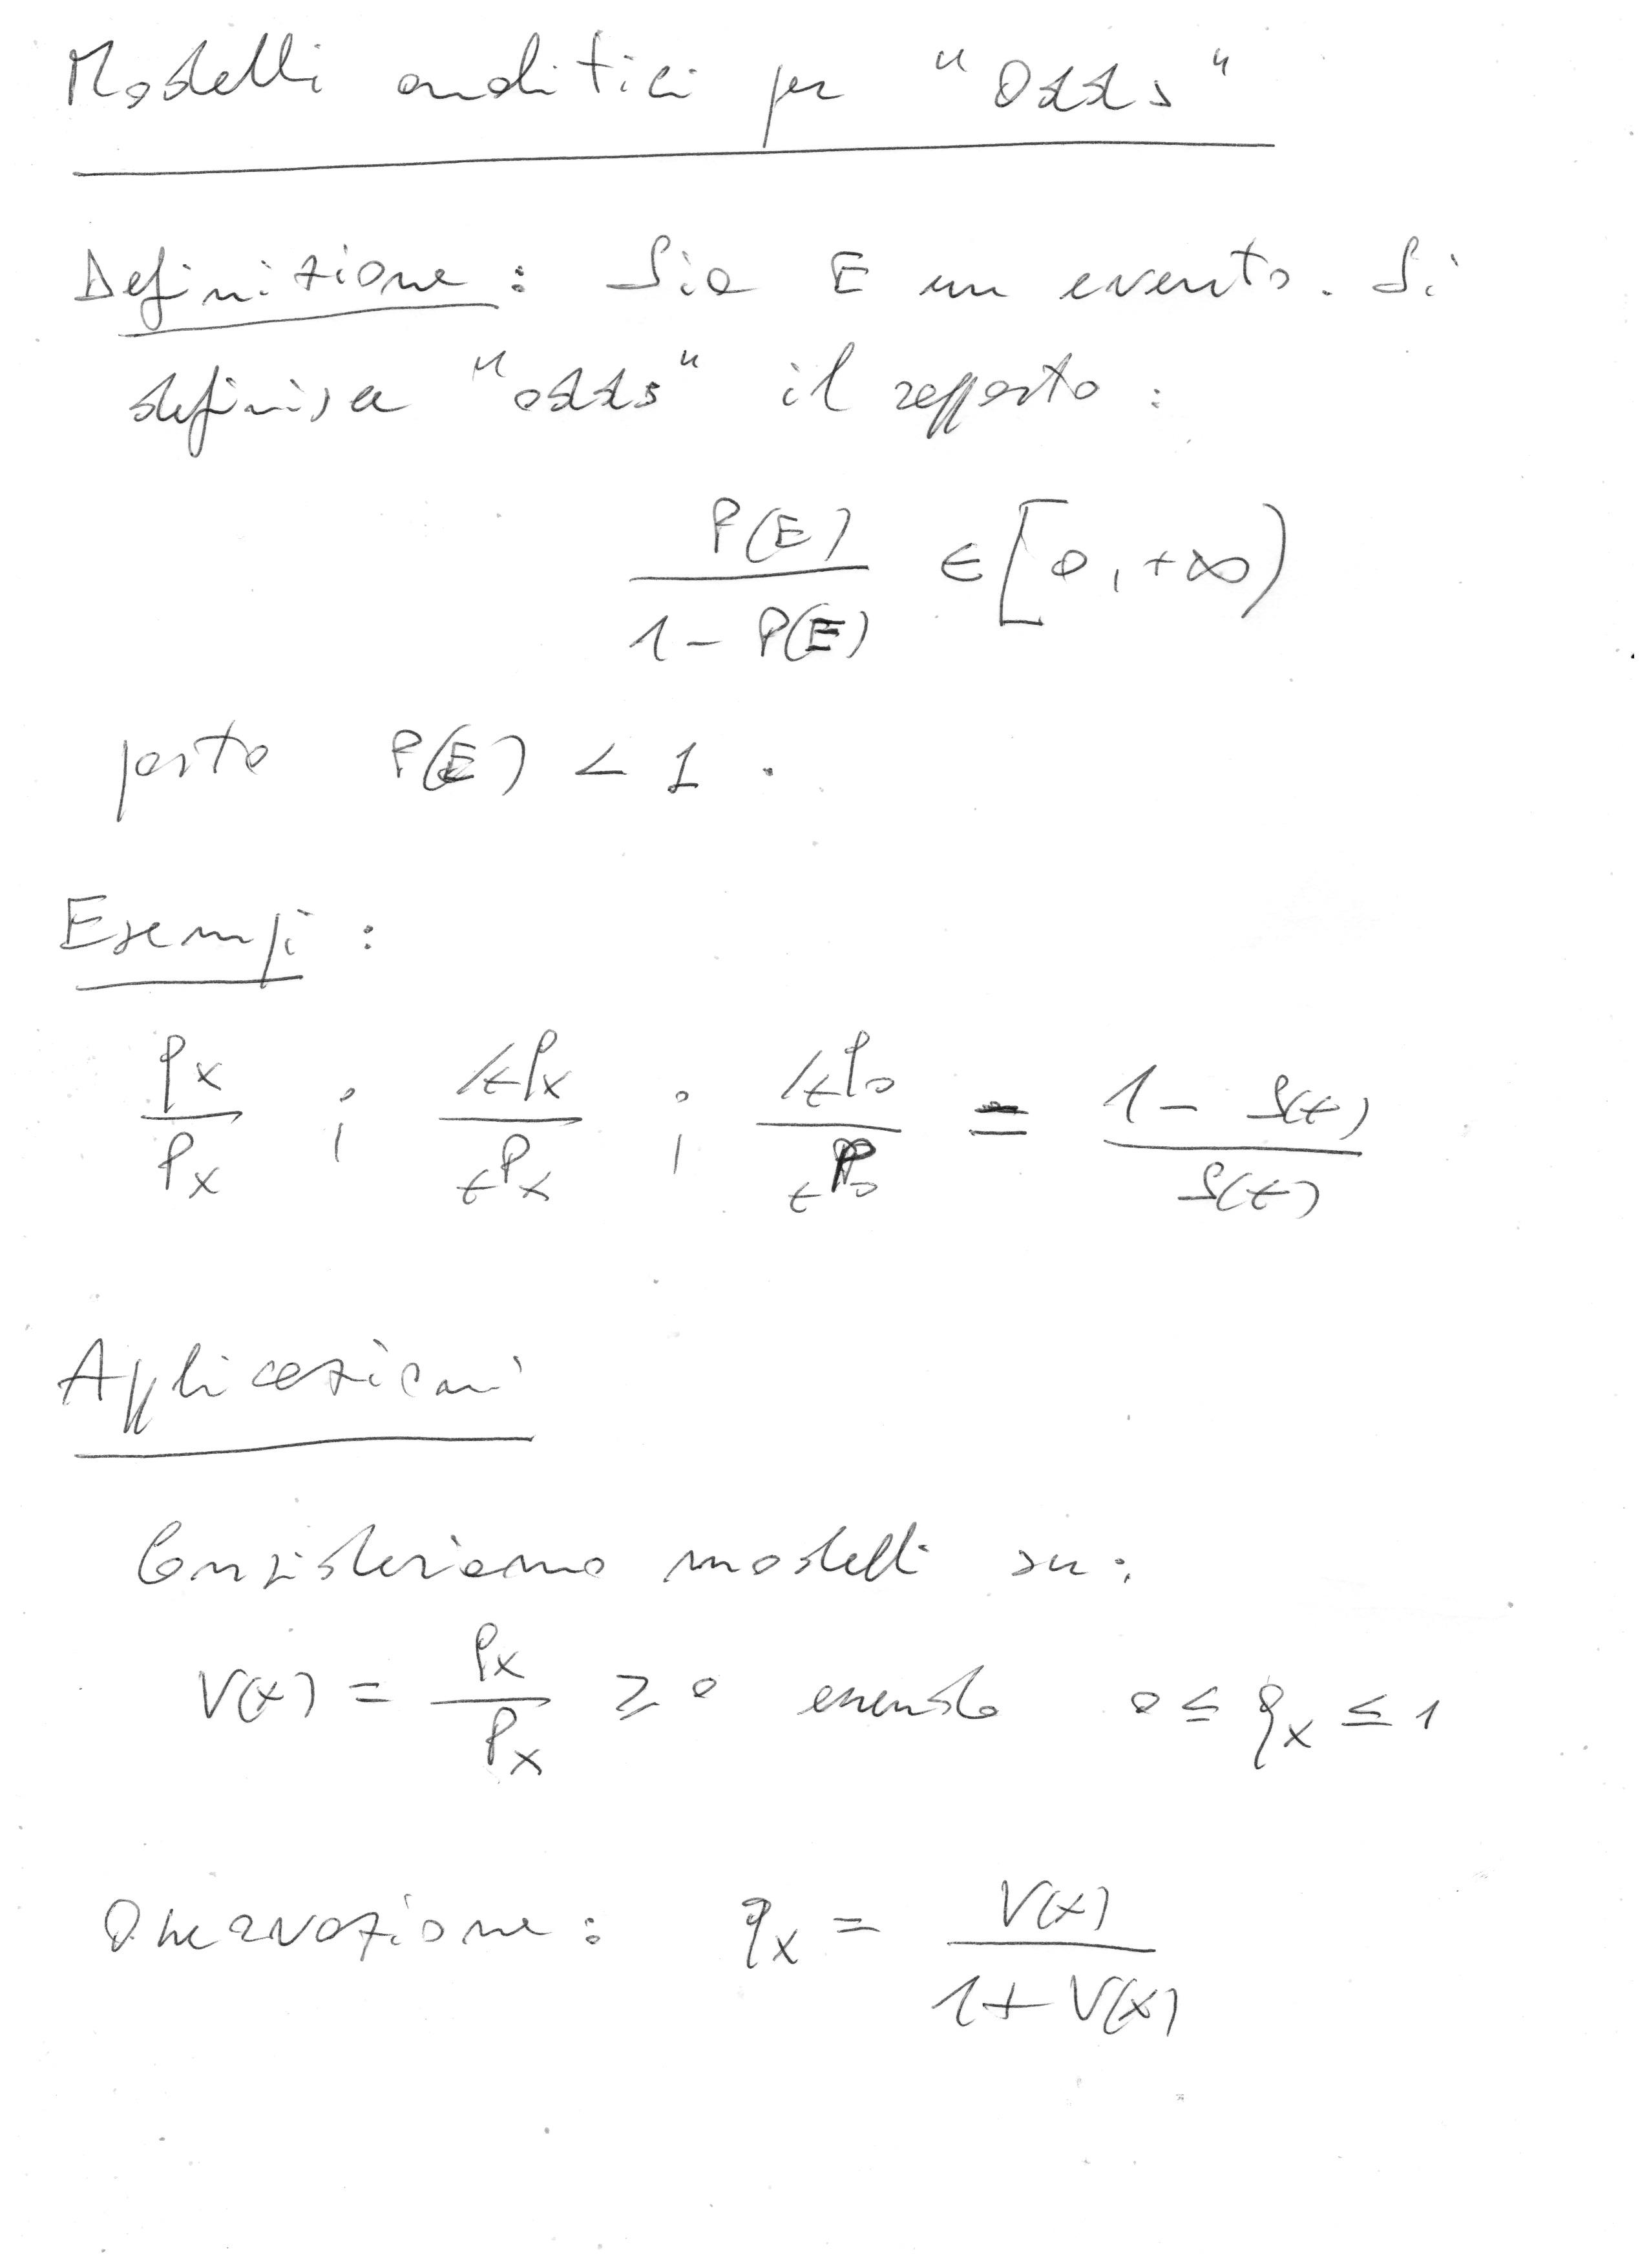 Modelli analitici per "Odds"
Definizione: Sia E un evento. Si
definisce "odds" il rapporto:
P(E) / (1 - P(E)) ∈ [0, +∞)
posto P(E) < 1.
Esempi:
qx / px ; /t qx / t px ; /t q0 / t p0 = (1 - S(t)) / S(t)
Applicazioni
Consideriamo modelli su:
V(x) = qx / px ≥ 0 essendo 0 ≤ qx ≤ 1
Osservazione: qx = V(x) / (1 + V(x))